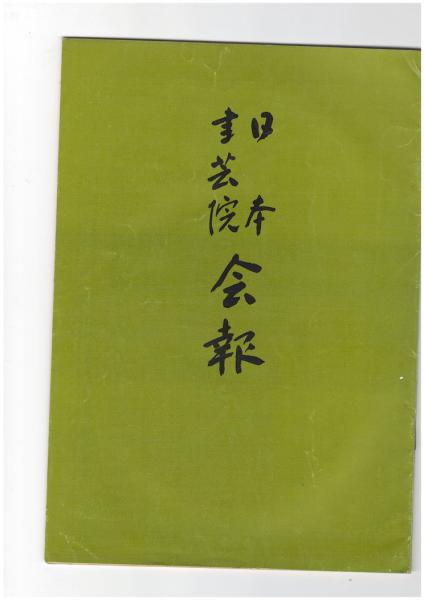 日本
書芸院
会報